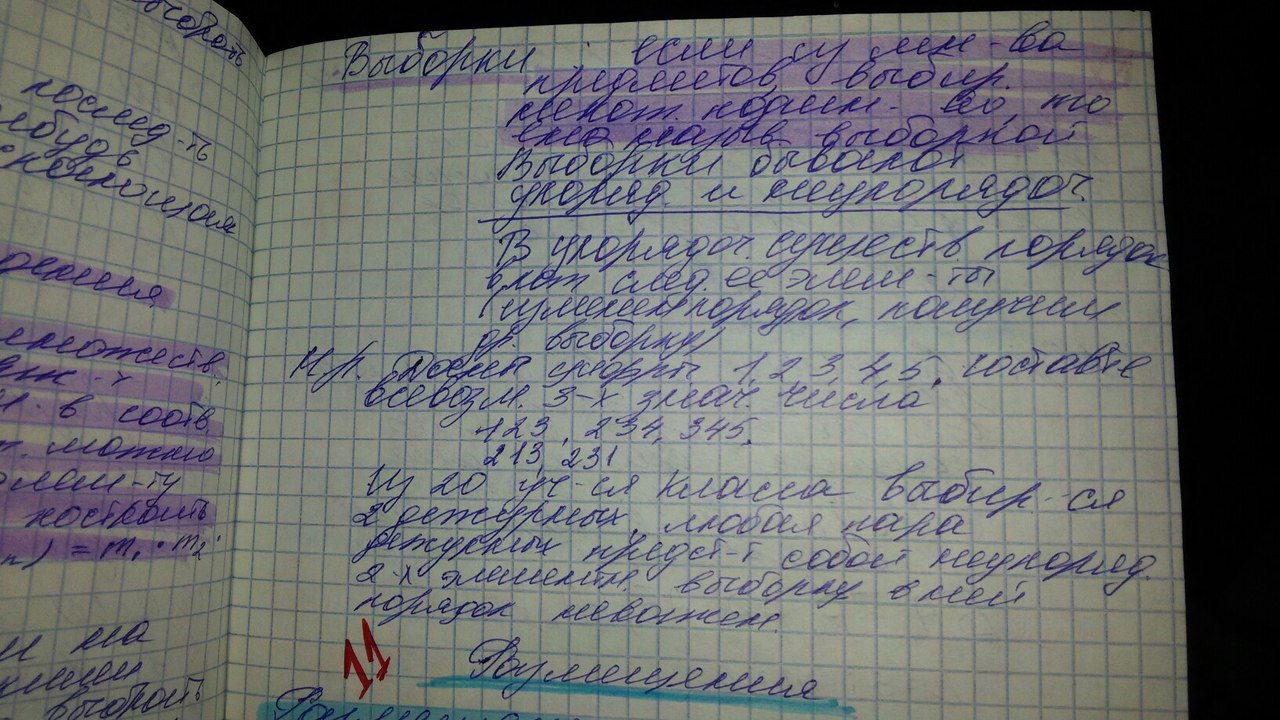 выбрать
послед-ть
дения
множеств.
м. в соотв
т. можно
элем-ту
построить
n) = m₁ · m₂ ·
и на
выбрать
Выборки : если из мн-ва
предметов выбир.
некот. подмн-во, то
оно назыв. выборкой
Выборки бывают
упоряд. и неупорядоч.
В упорядоч. существ. порядок
в кот след. ее элем-ты
(изменен порядок, получим
др. выборку)
Н/р. 1, 2, 3, 4, 5. составьте
всевозм. 3-х знач. числа
123, 234, 345.
213, 231
Из 20 уч-ся класса выбир-ся
2 дежурных, любая пара
дежурных предст-т собой неупоряд.
2-х элементн. выборку в ней
порядок неважен.
11
Размещения